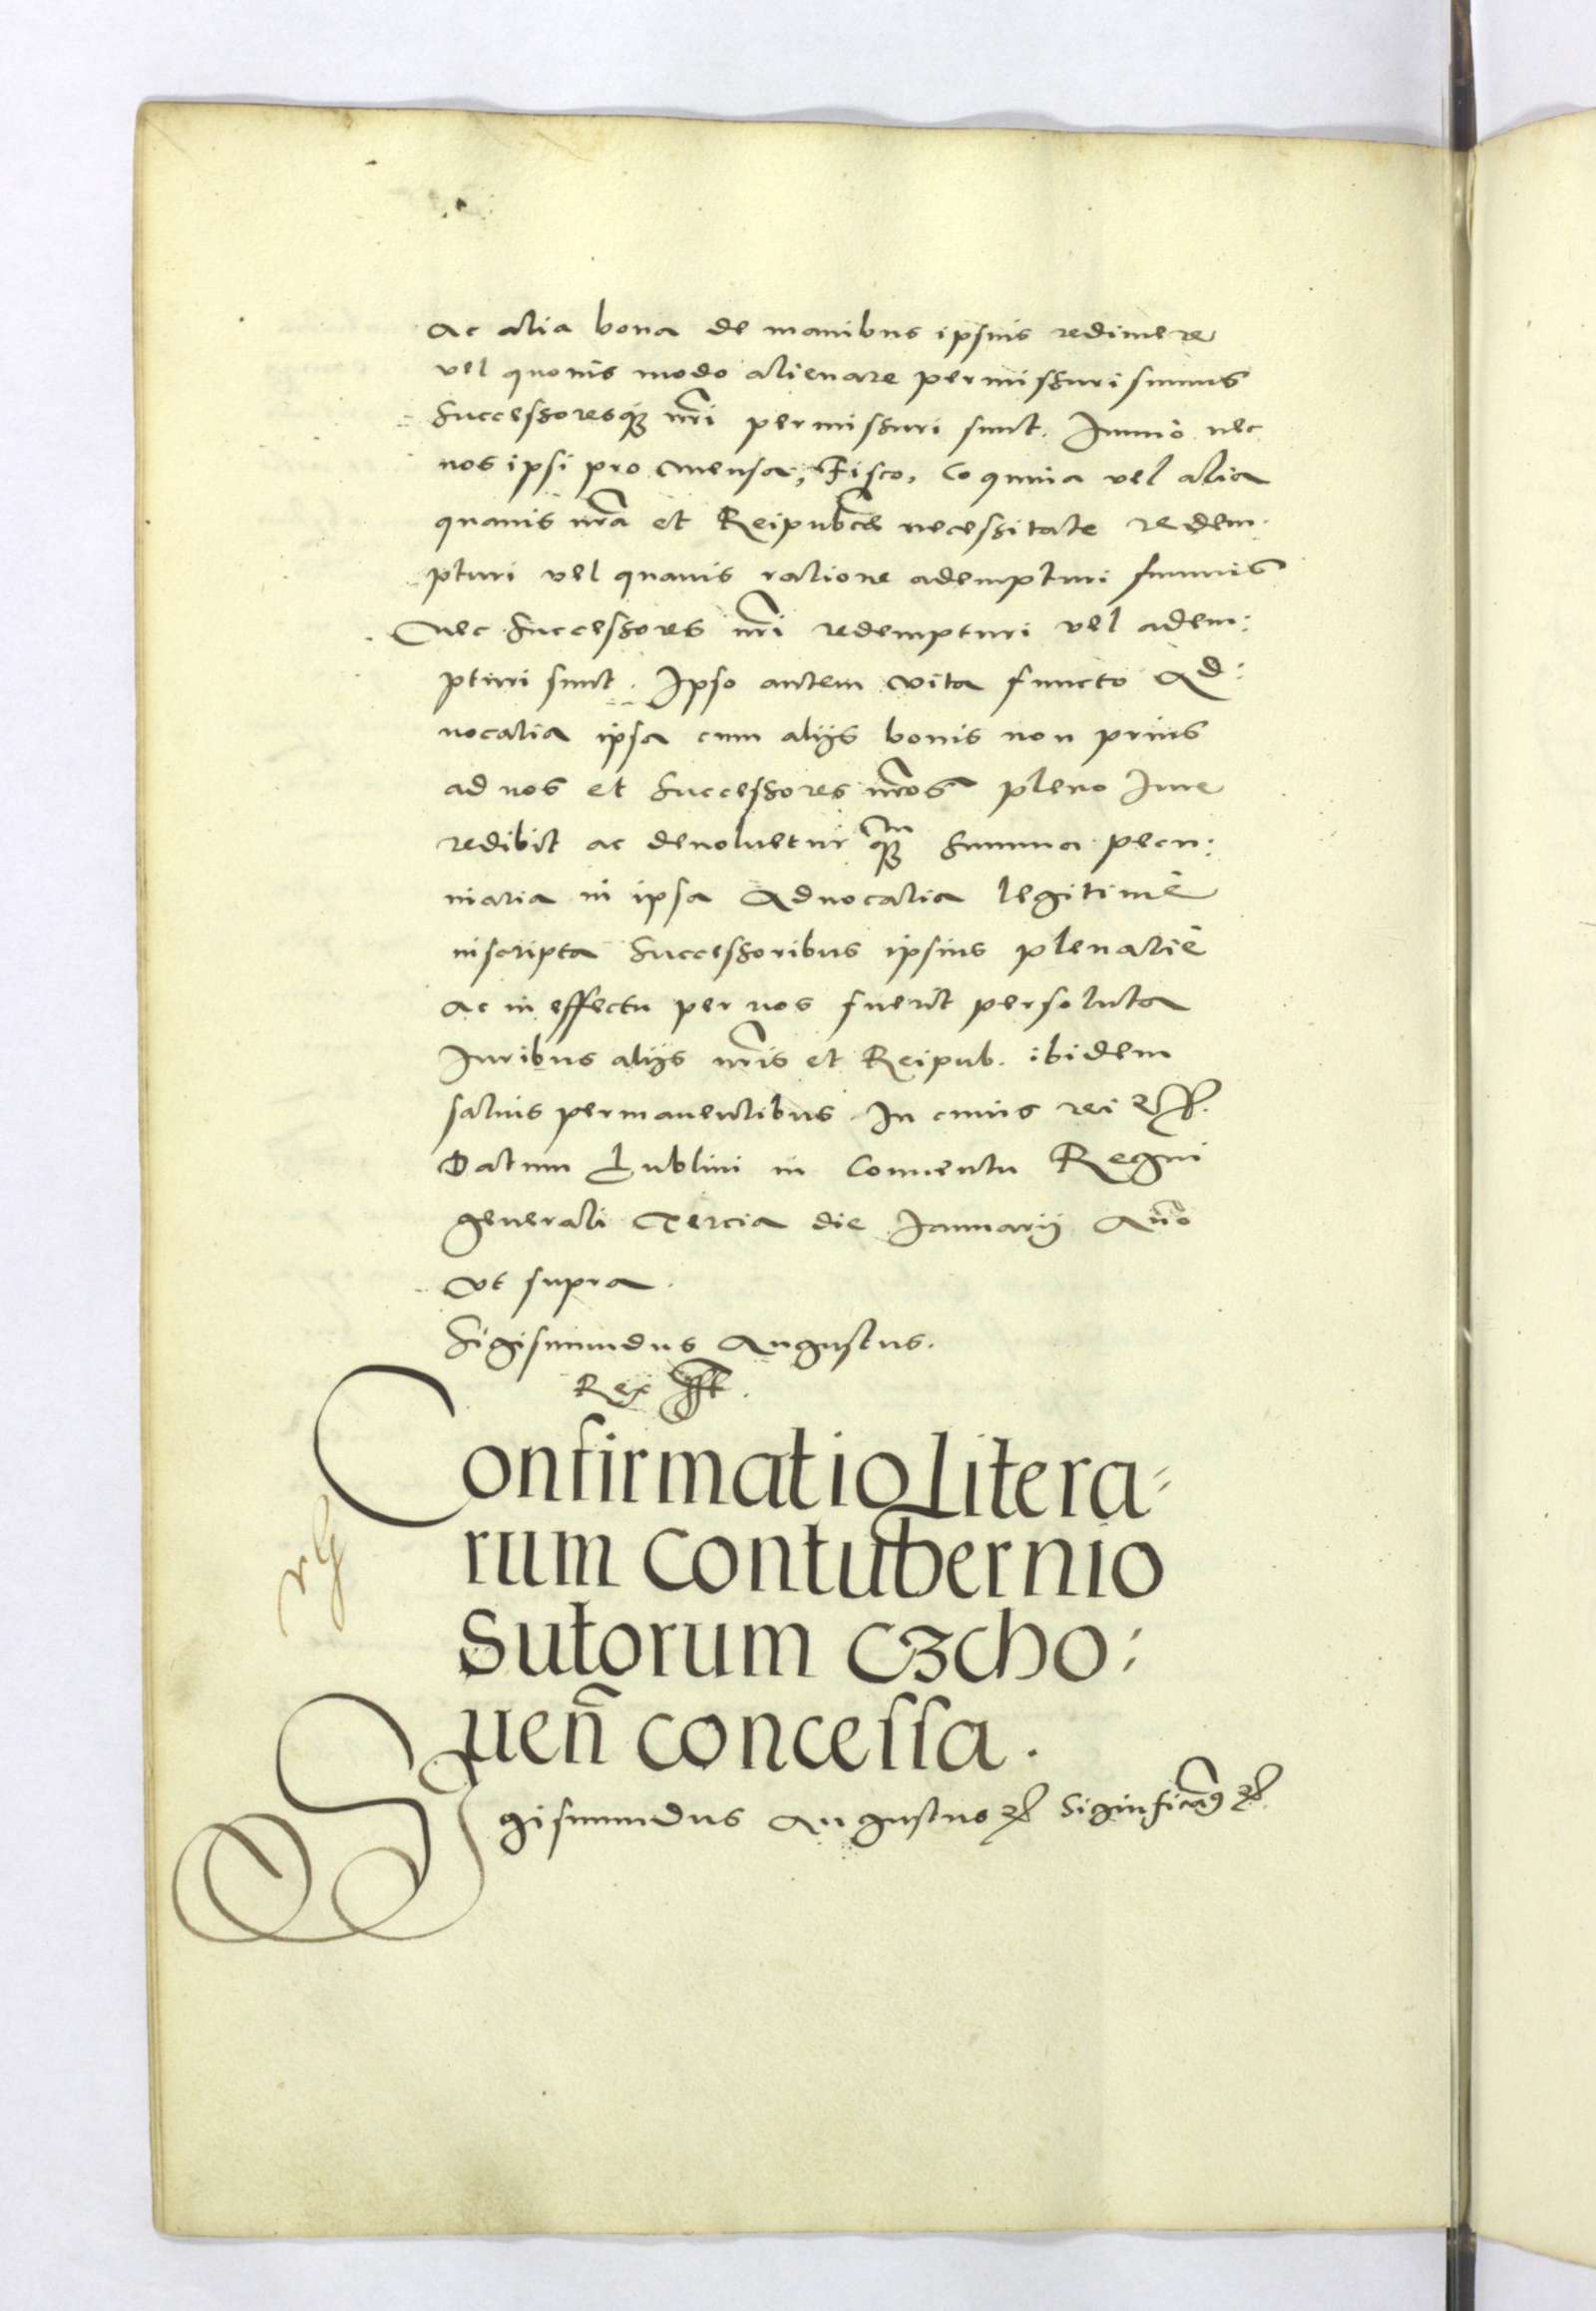 ac alia bona de manibus ipsius redimere
vel quouis modo alienare permissuri sumus
Successoresq3 nr̃i permissuri sunt. Immò nec
nos ipsi pro Mensa, Fisco, Coquina vel alia
quauis nr̃a et Reipub̃cae necessitate redem-
pturi vel quauis ratione adempturi sumus
Nec Successores nr̃i redempturi vel adem:
pturi sunt. Ipso autem vita functo Ad:
uocatia ipsa cum alijs bonis non prius
ad nos et Successores nr̃os pleno Iure
redibit ac deuoluetur q̃3 Summa pecu:
niaria in ipsa Aduocatia legitimè
inscripta Successoribus ipsius plenariè
ac in effectu per nos fuerit persoluta
Iuribus alijs nr̃is et Reipub. ibidem
saluis permanentibus. In cuius rei
Datum Lublini in Conuentu Regni
generali Tercia die Ianuarij Año
Vt supra.
Sigismundus Augustus.
Rex sst.
Confirmatio Litera-
rum contubernio
Sutorum Czcho:
ueñ concessa.
Sigismundus Augustus &c Significam9 &c.